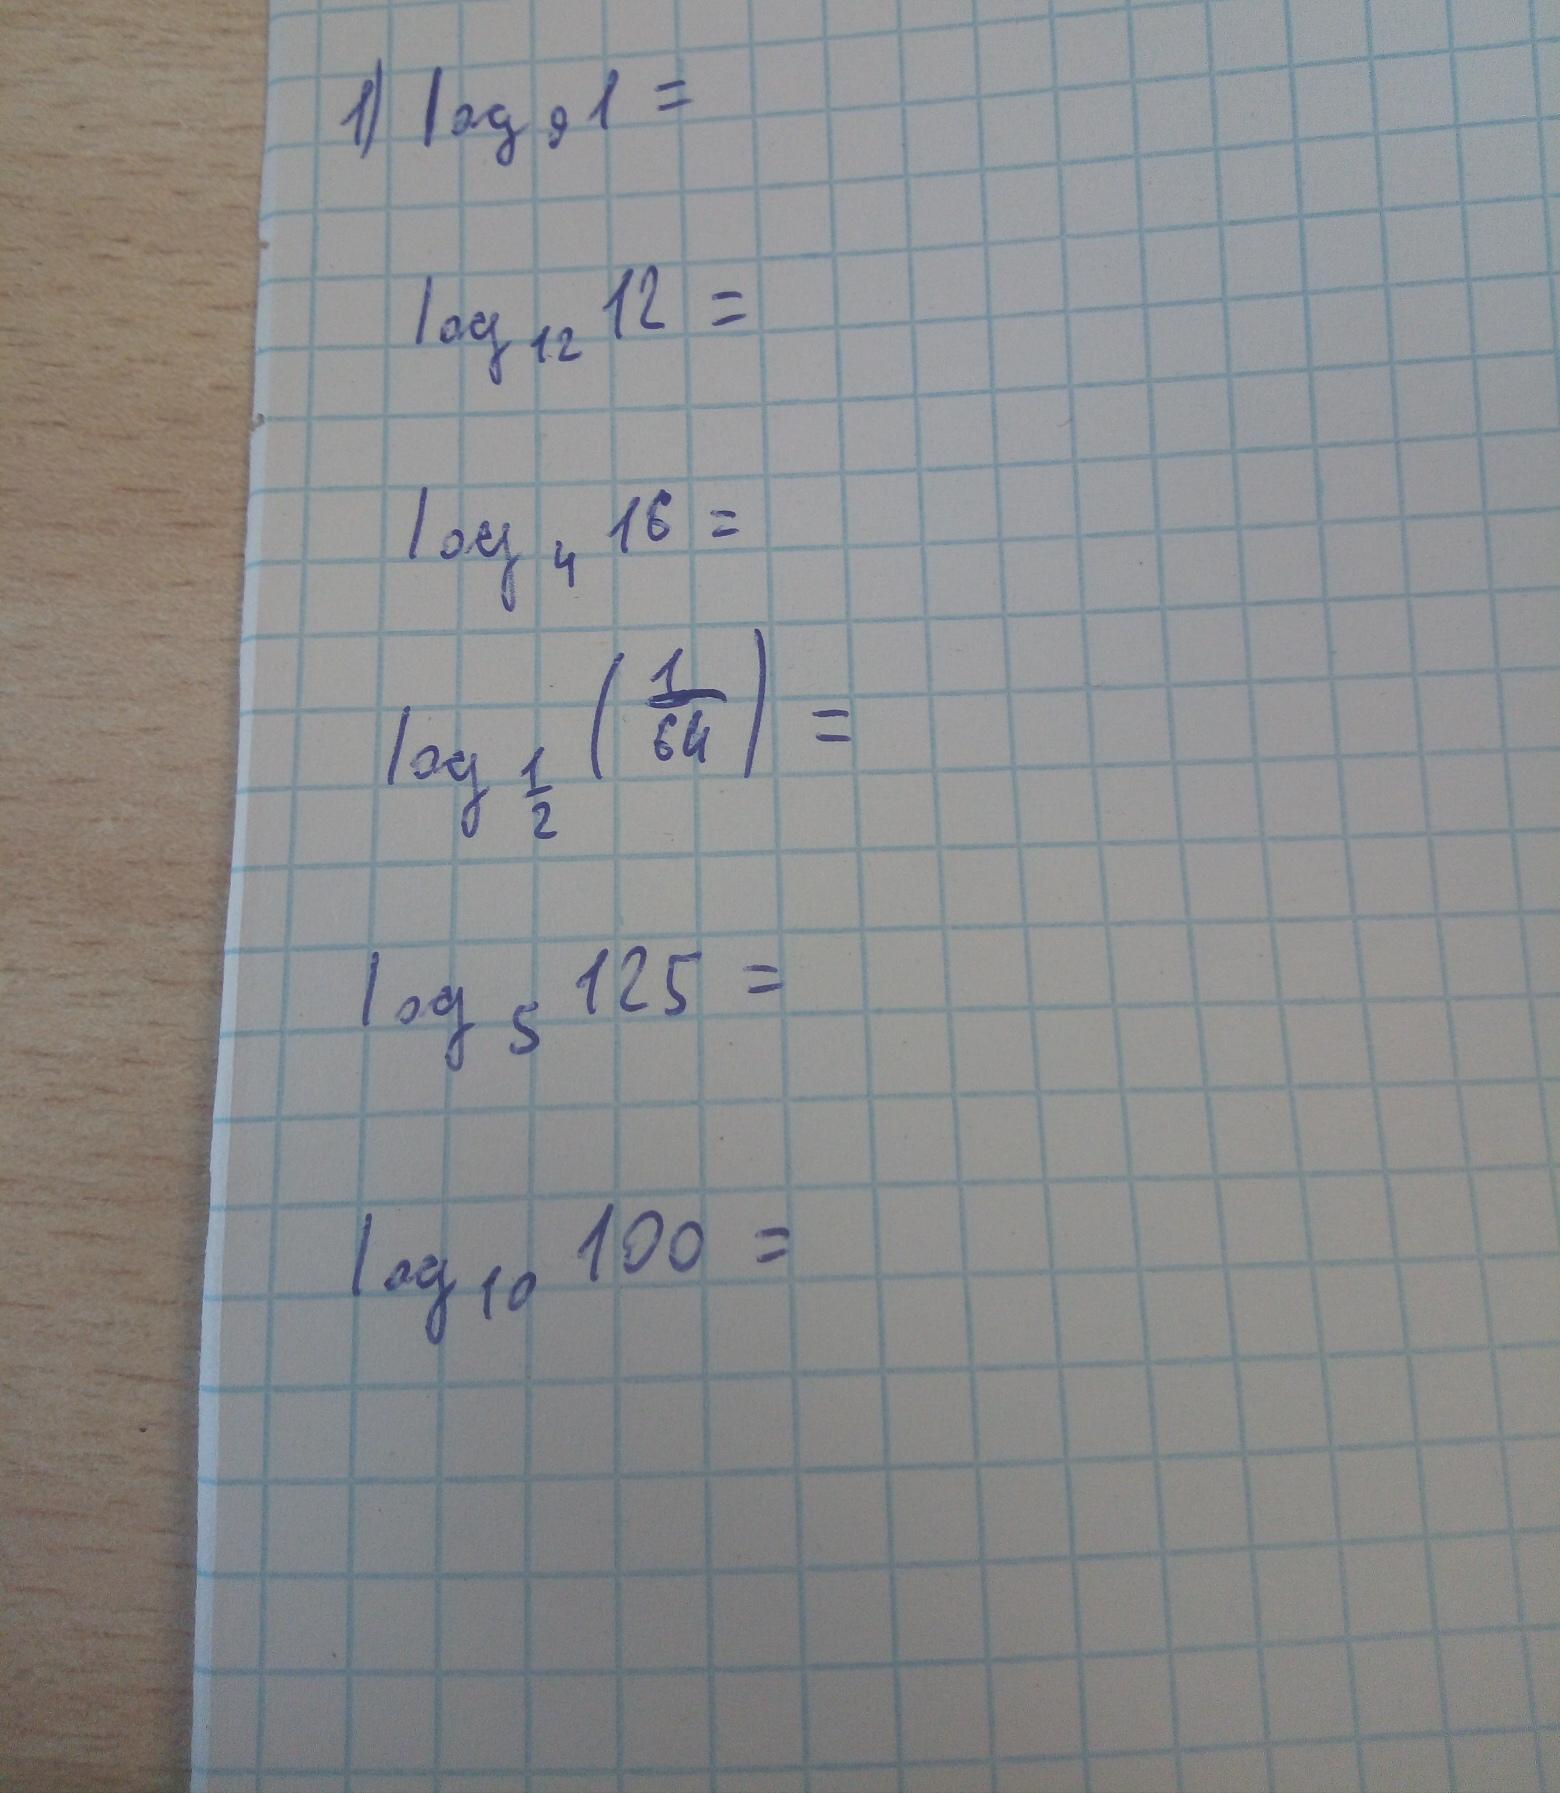 1) log₉ 1 =
log₁₂ 12 =
log₄ 16 =
log_{1/2} (1/64) =
log₅ 125 =
log₁₀ 100 =